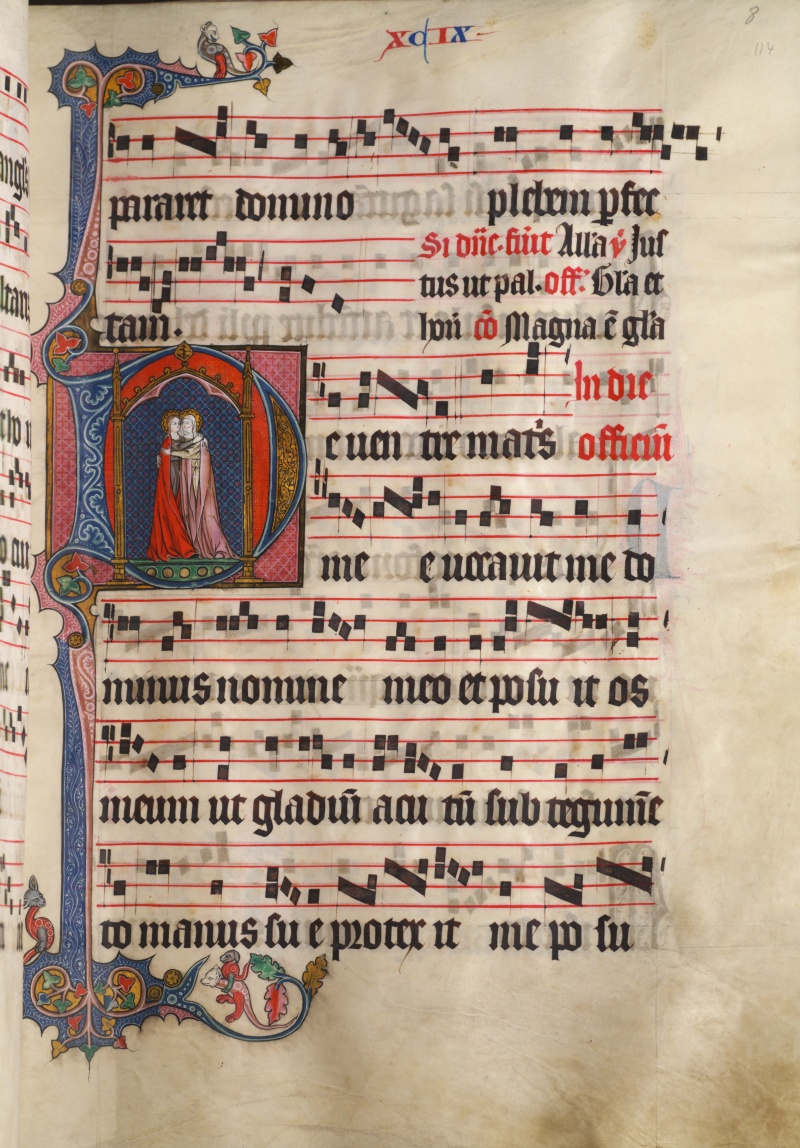 xcix
8
114
pararet domino plebem pfec
Si dñe. fũit Alla ꝟ Jus
tus ut pal. off. Gl'a et
tam. hon̄ cō Magna ē gl'a
In die
E uen tre mat's officiũ
me e uocauit me do
minus nomine meo et posu it os
meum ut gladiũ acu tũ sub tegumĩe
to manus su e protex it me po su